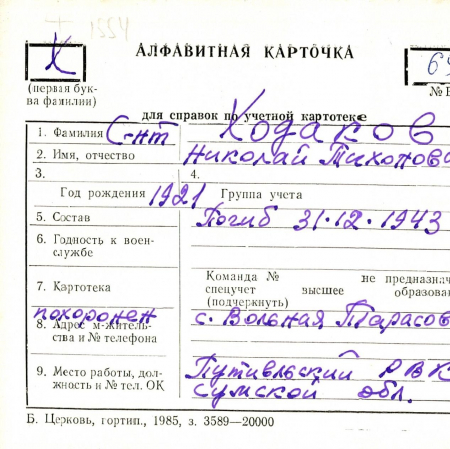 1554
АЛФАВИТНАЯ КАРТОЧКА
Х
(первая бук-
ва фамилии)
№
для справок по учетной картотеке
1. Фамилия С-нт Ходаков
2. Имя, отчество Николай
3. 4.
Год рождения 1921 Группа учета
5. Состав Погиб 31.12.1943
6. Годность к воен-
службе
Команда № не предназнач
7. Картотека спецучет высшее образован
(подчеркнуть)
похоронен
8. Адрес м-житель-
ства и № телефона
с. Вольная Тарасов
9. Место работы, дол-
жность и № тел. ОК
Путивльский РВК
Сумской обл.
Б. Церковь, гортип., 1985, з. 3589—20000